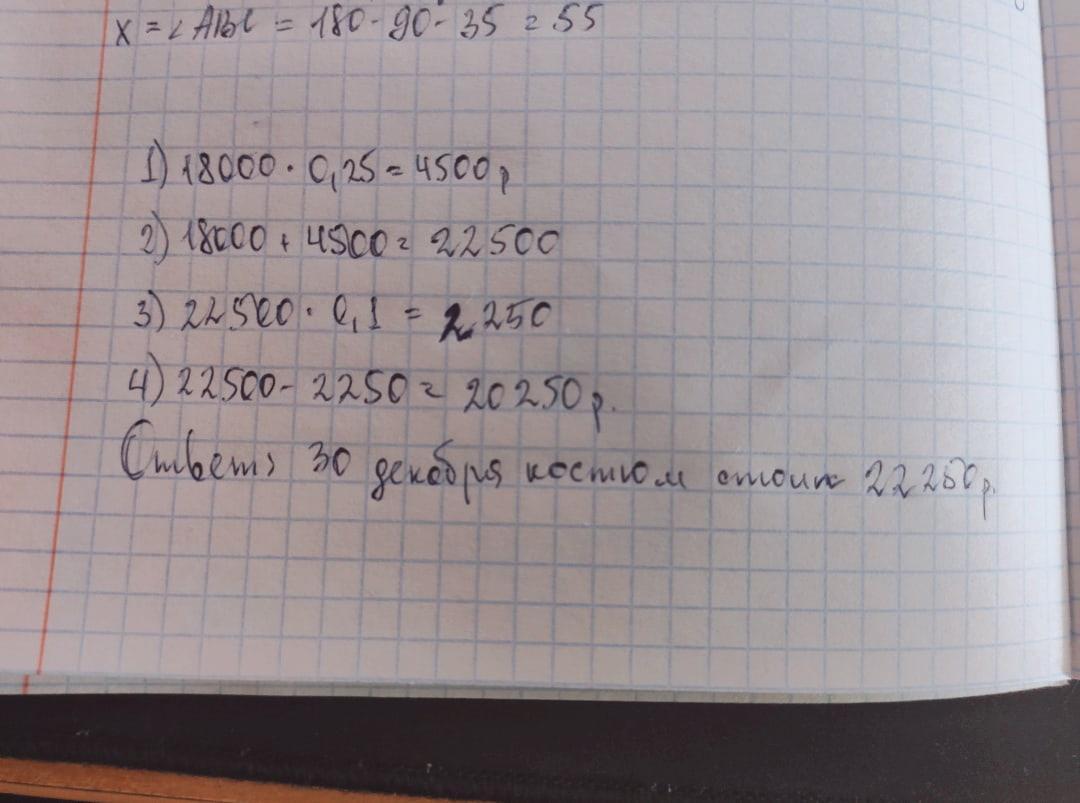 x = ∠ABC = 180 - 90 - 35 = 55
1) 18000 · 0,25 = 4500 р
2) 18000 + 4500 = 22500
3) 22500 · 0,1 = 2250
4) 22500 - 2250 = 20250 р.
Ответ: 30 декабря костюм стоит 22250 р.